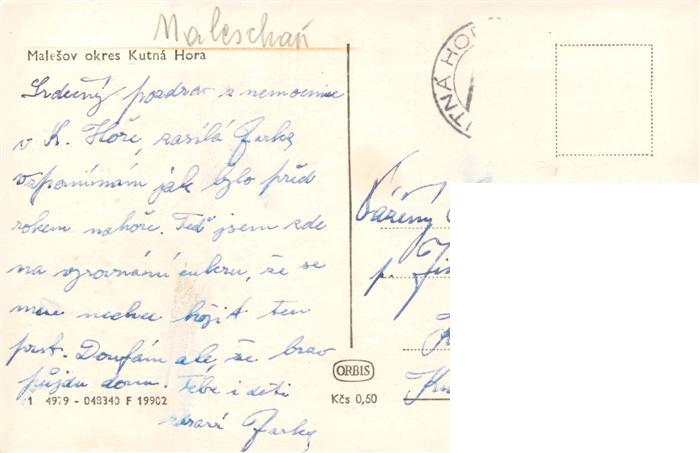 Maleschau
Malešov okres Kutná Hora
Srdečný pozdrav z nemocnice
v K. Hoře, zasílá Jarka
vzpomínám jak bylo před
rokem nahoře. Teď jsem zde
na vyrovnání cukru, že se
mne nechce hojit ten
prst. Doufám ale, že brzo
půjdu domu. Tebe i děti
zdraví Jarka
1 4979 - 048340 F 19902
ORBIS
Kčs 0,50
TNÁ HO
Vážený
p.